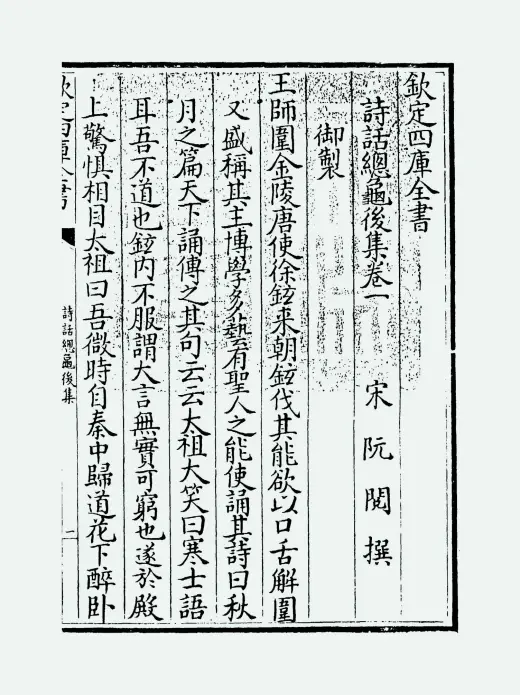 欽定四庫全書
詩話總龜後集卷一　宋　阮閱　撰
御製
王師圍金陵唐使徐鉉来朝鉉伐其能欲以口舌解圍
又盛稱其主博學多藝有聖人之能使誦其詩曰秋
月之篇天下誦傳之其句云云太祖大笑曰寒士語
耳吾不道也鉉内不服謂大言無實可窮也遂於殿
上驚惧相目太祖曰吾微時自秦中歸道花下醉卧
欽定四庫全書
詩話總龜後集
一